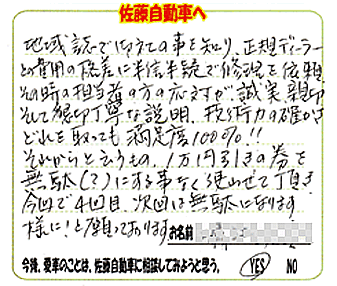 佐藤自動車へ
地域誌でこちらの事を知り、正規ディーラー
との費用の格差に半信半疑で修理を依頼
その時の担当者の方の応対が、誠実、親切
そして懇切丁寧な説明、技術力の確かさ
どれを取っても満足度100%!!
それからというもの、1万円引きの券を
無駄(?)にする事なく使わせて頂き
今回で4回目、次回は無駄になります
様に!と願っております
お名前
今後、愛車のことは、佐藤自動車に相談してみようと思う。 YES NO